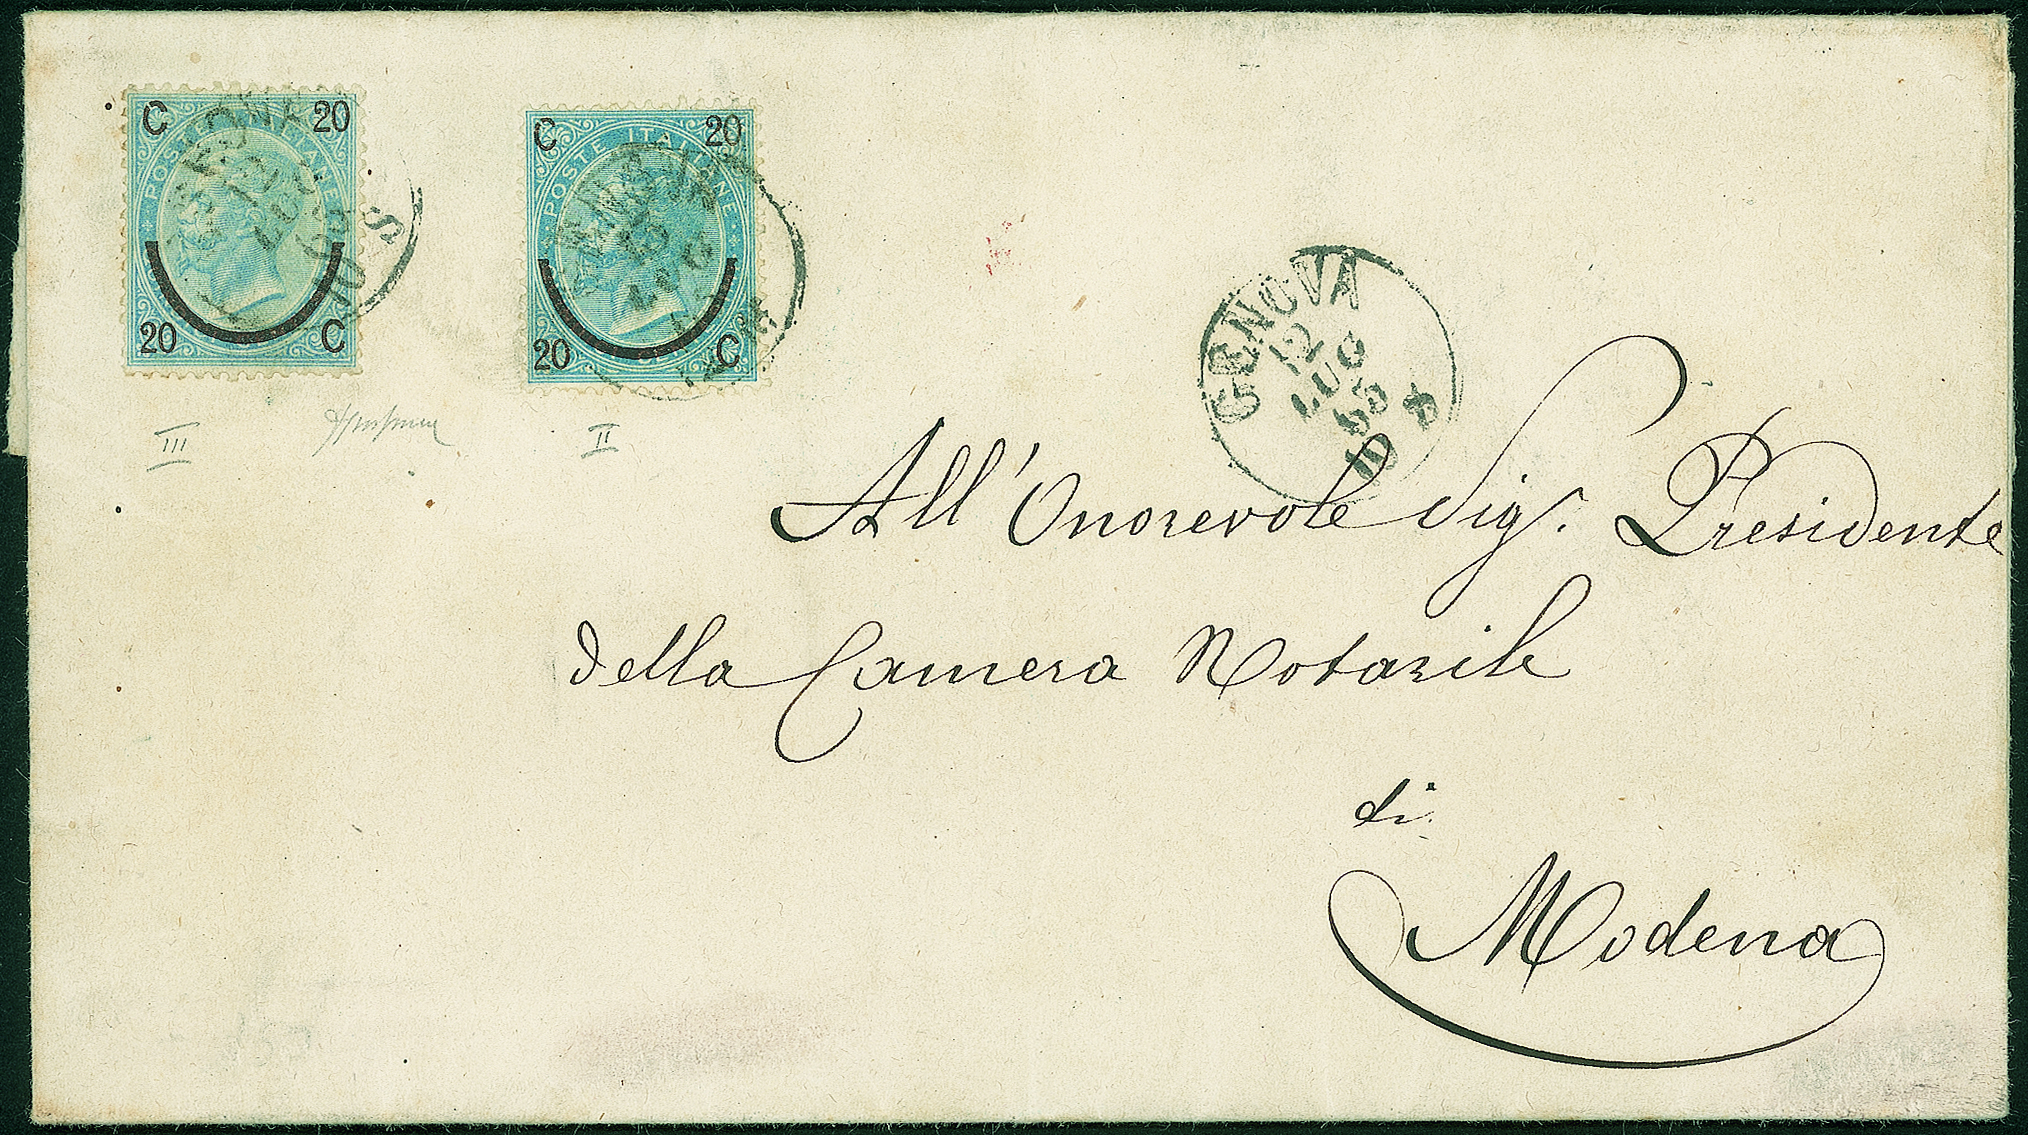 C 20
POSTE ITALIANE
20 C
C 20
POSTE ITALIANE
20 C
III
II
GENOVA
12
LUG
65
10 S
All'Onorevole Sig. Presidente
della Camera Notarile
di
Modena